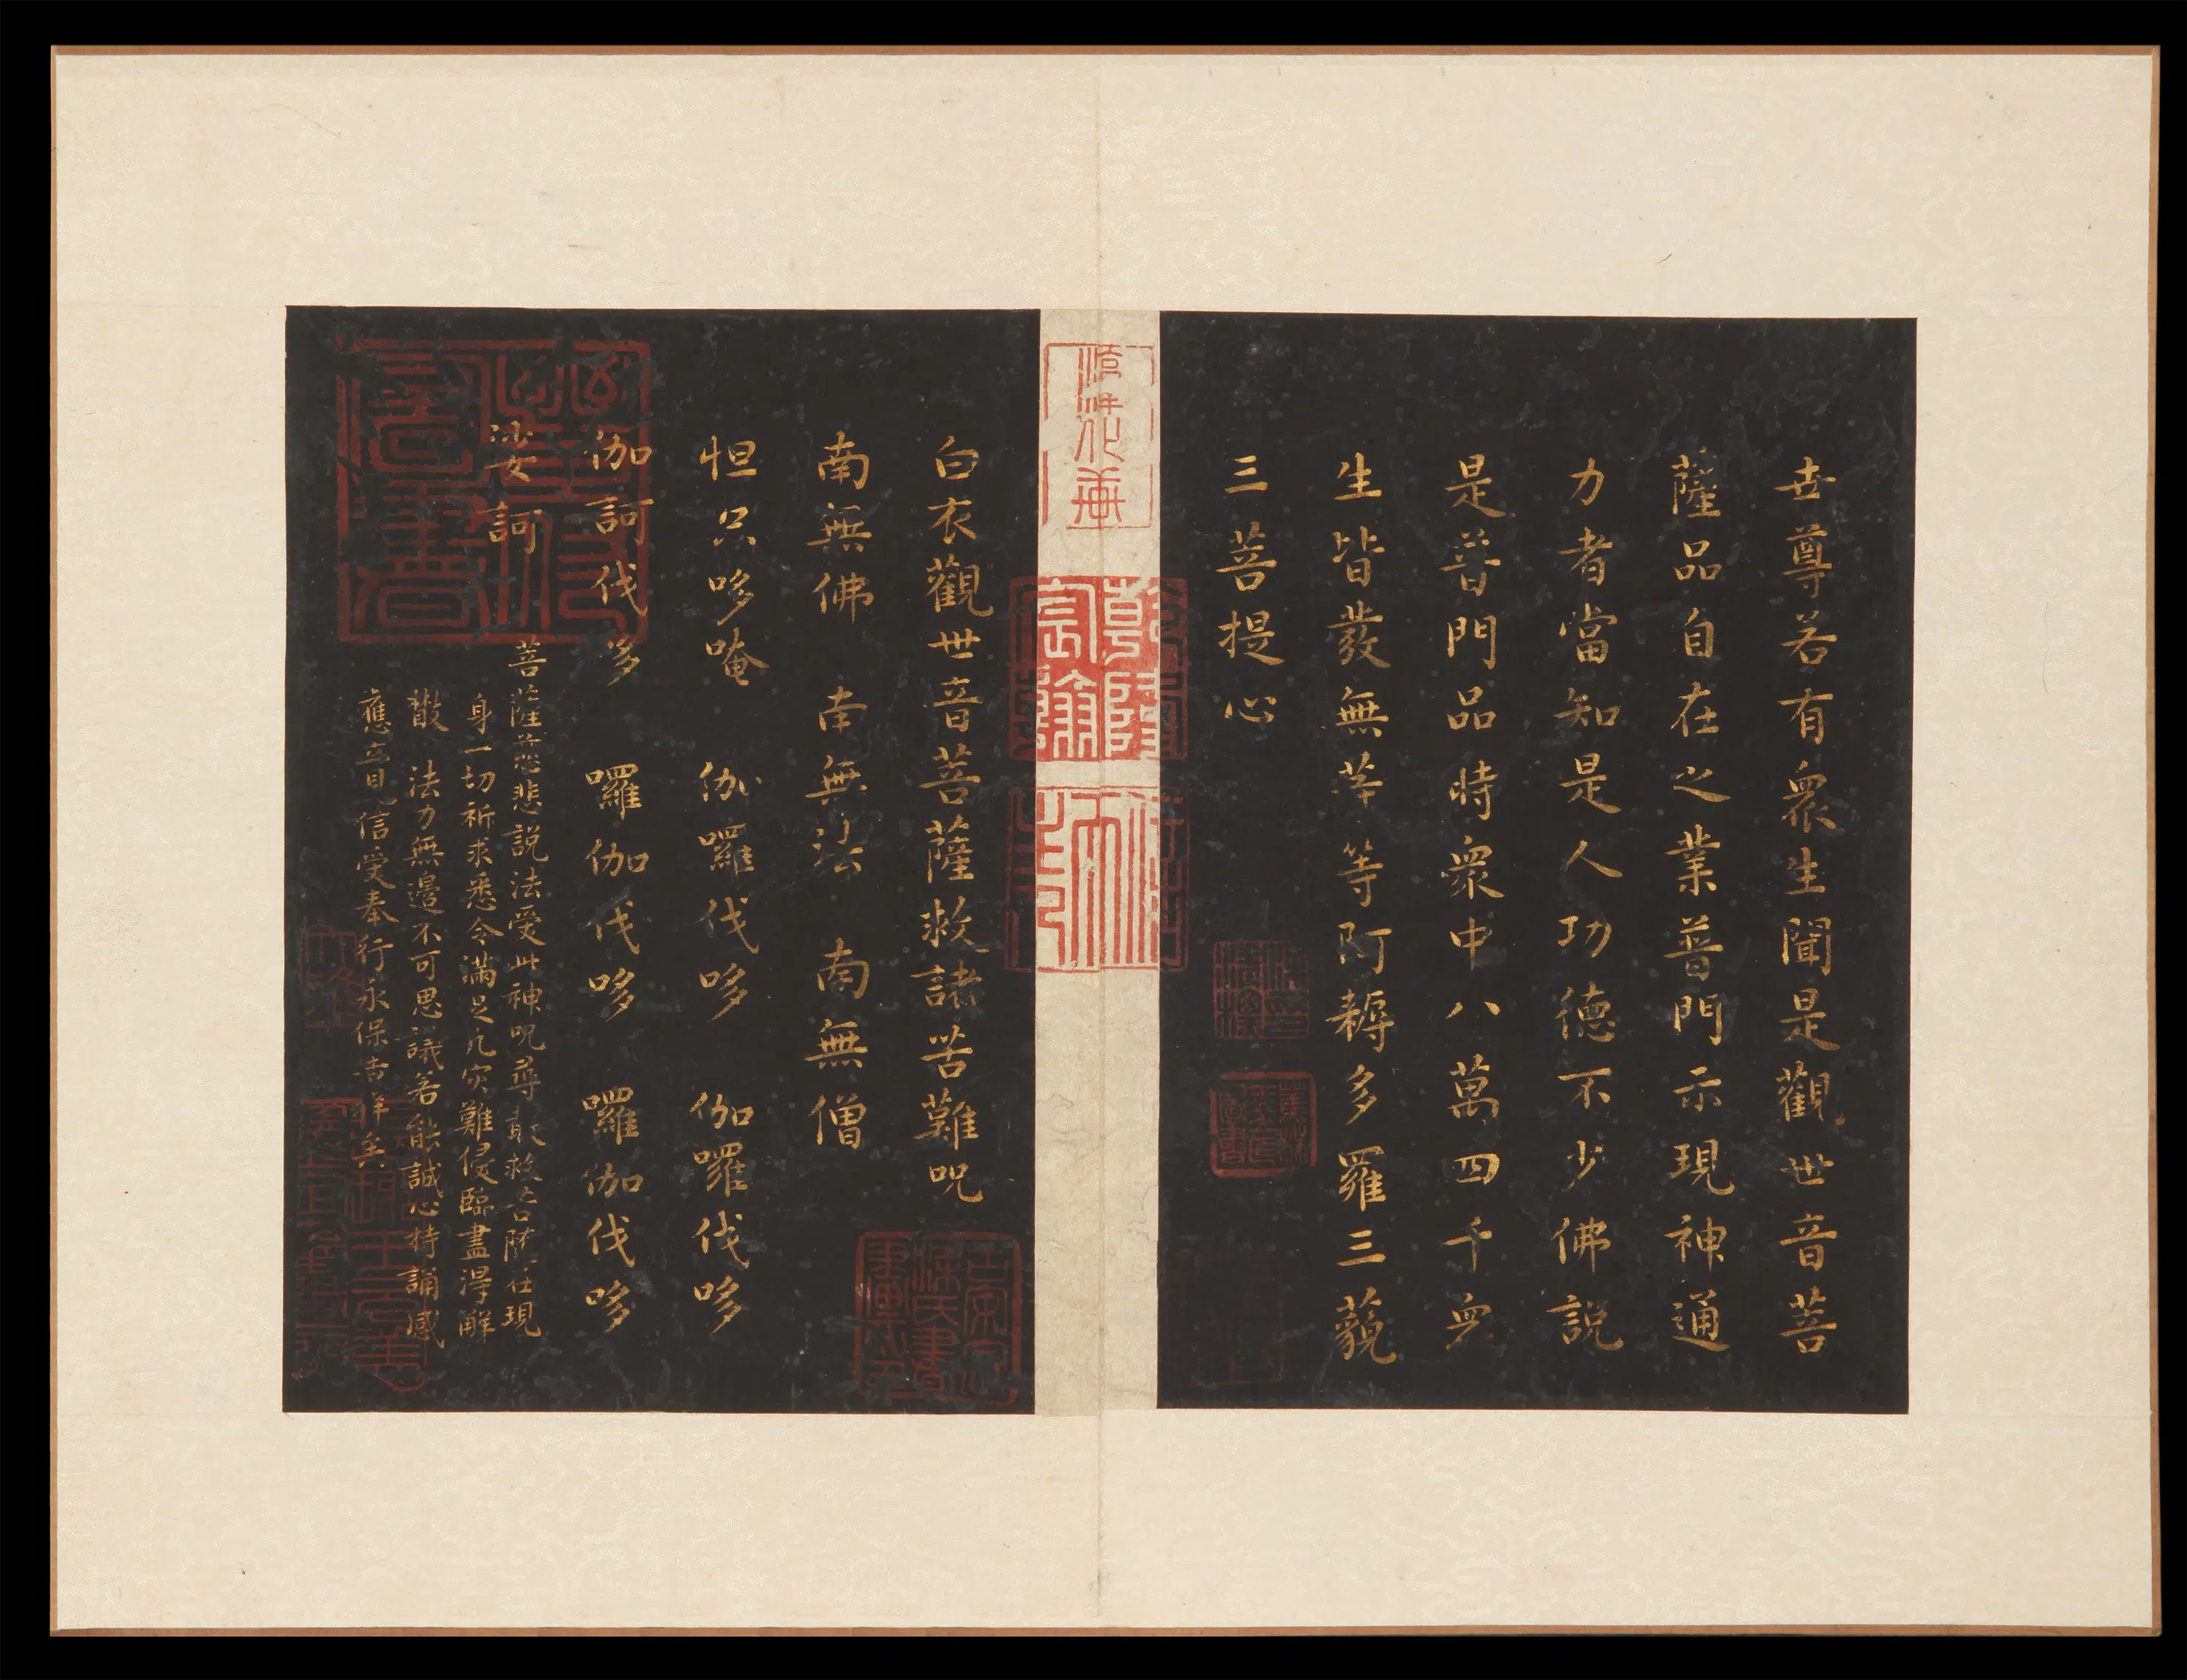 世尊若有衆生聞是觀世音菩
薩品自在之業普門示現神通
力者當知是人功德不少佛說
是普門品時衆中八萬四千衆
生皆發無等等阿耨多羅三藐
三菩提心
白衣觀世音菩薩救諸苦難呪
南無佛 南無法 南無僧
怛只哆唵 伽囉伐哆 伽囉伐哆
伽訶伐多 囉伽伐哆 囉伽伐哆
娑訶
菩薩慈悲説法受此神呪尋救苦隨在現
身一切祈求悉令滿足凡灾難侵臨盡得解
散 法力無邊不可思議若能誠心持誦感
應立見信受奉行永保吉祥